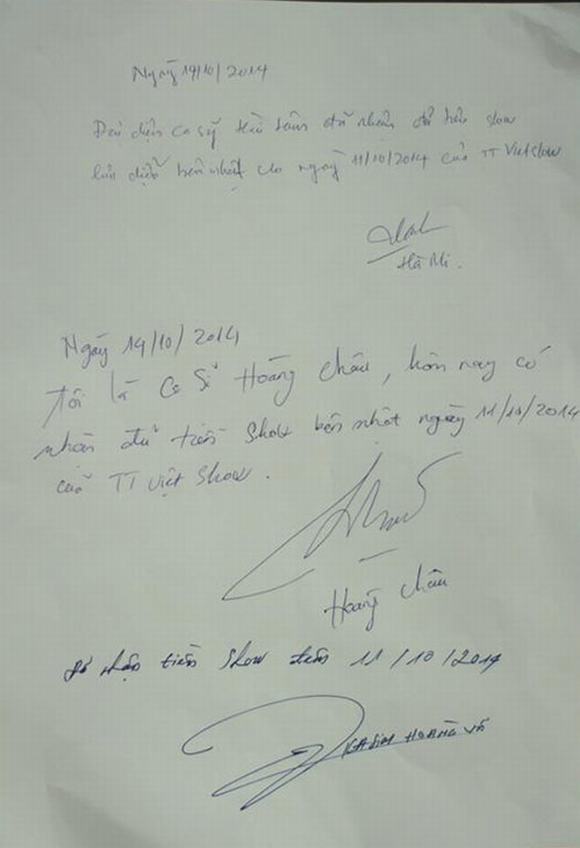 Ngày 14/10/2014
Đại diện ca sỹ đã nhận đủ tiền show
biểu diễn bên nhật cho ngày 11/10/2014 của TT Viet show
Hà Mi.
Ngày 14/10/2014
Tôi là Ca Sĩ Hoàng Châu, hôm nay có
nhận đủ tiền Show bên nhật ngày 11/10/2014
của TT Việt Show.
Hoàng Châu
Đã nhận tiền Show đêm 11/10/2014
KASIM HOÀNG VŨ